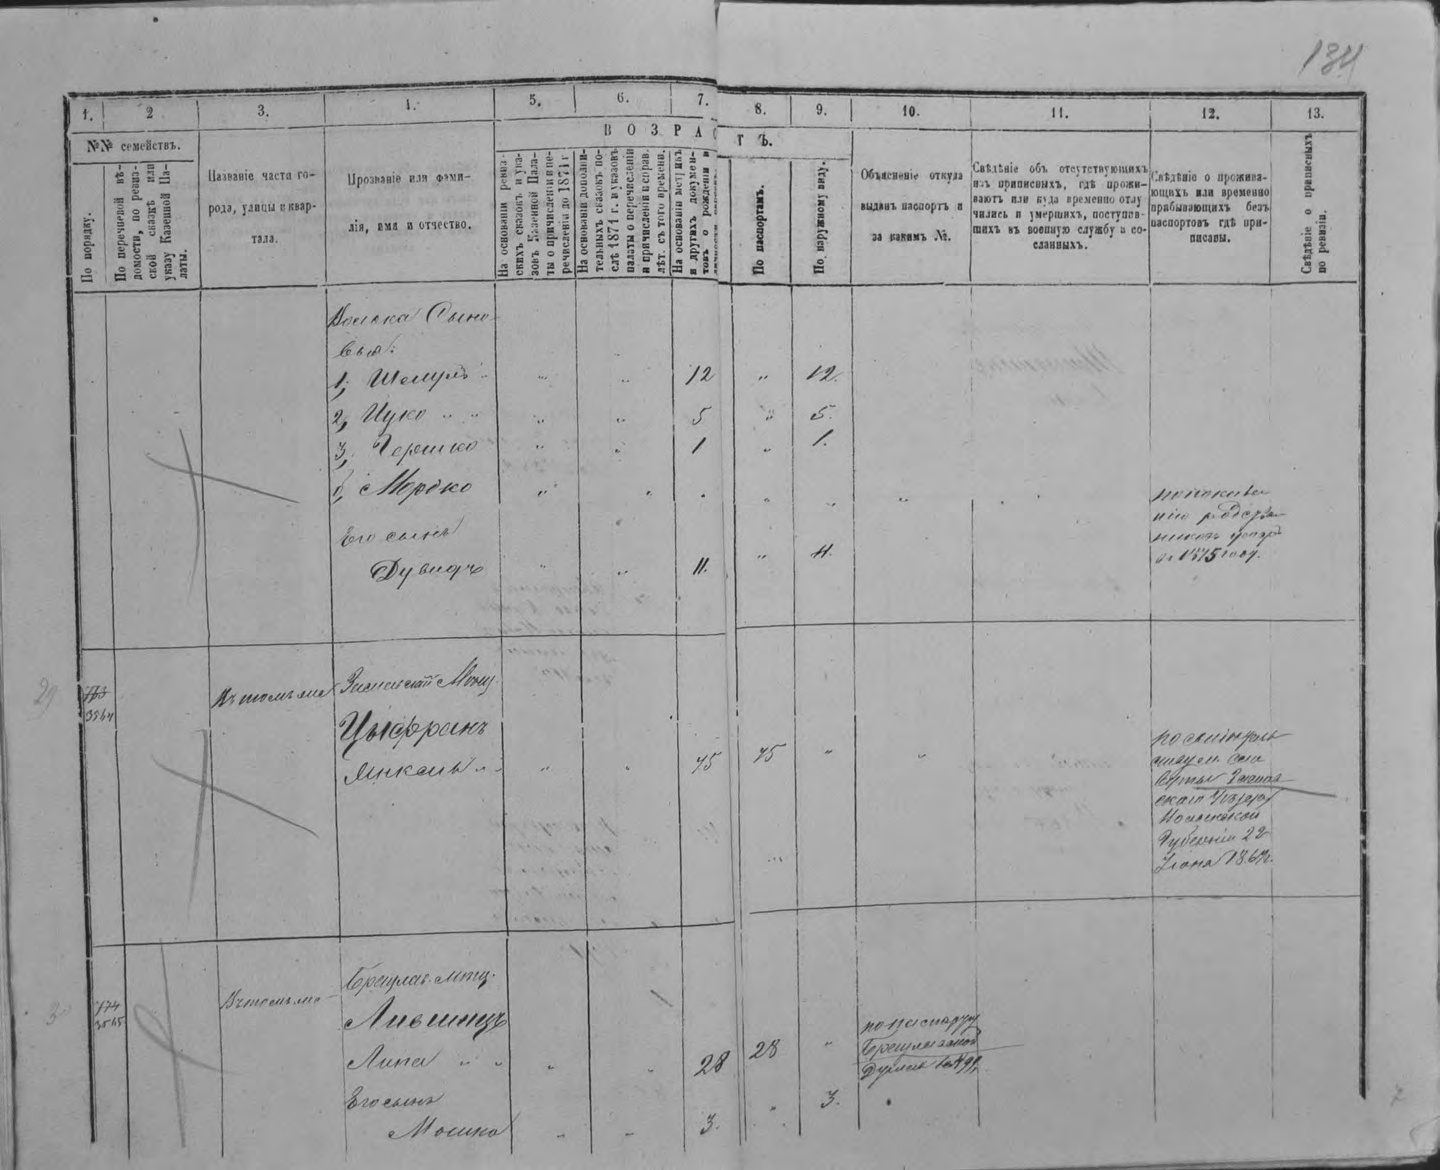 134
1. 2 3. 4. 5. 6. 7. 8. 9. 10. 11. 12. 13.
№№ семействъ.
По порядку.
По перечневой вѣ-
домости, по ревиз-
ской сказкѣ или
указу Казенной Па-
латы.
Названіе части го-
рода, улицы и квар-
тала.
Прозваніе или фами-
лія, имя и отчество.
ВОЗРАСТЪ.
На основаніи ревиз-
скихъ сказокъ и ука-
зовъ Казенной Пала-
ты о причисленіи и пе-
речисленіи до 1874 г
На основаніи дополни-
тельныхъ сказокъ по-
слѣ 1874 г. и указовъ
палаты о перечисленіи
и причисленіи и справ.
лѣт. съ того времени.
На основаніи метрикъ
и другихъ докумен-
товъ о рожденіи и
По паспортамъ.
По наружному виду.
Объясненіе откуда
выданъ паспортъ и
за какимъ №.
Свѣдѣніе объ отсутствующихъ
изъ приписныхъ, гдѣ прожи-
ваютъ или куда временно отлу
чились и умершихъ, поступив-
шихъ въ военную службу и со-
сланныхъ.
Свѣдѣніе о прожива-
ющихъ или временно
прибывающихъ безъ
паспортовъ гдѣ при-
писаны.
Свѣдѣніе о приписныхъ
по ревизіи.
Іоська Сыно-
вья:
1, Шемуль 12 12.
2, Ицко 5 5.
3, Гершко 1 1.
б, Мордко
Его сынъ
Дувидъ 11. 11.
по показа
нію родстве
никовъ
въ 1875 году.
29
773
3564
Въ томъ же
Мѣщ.
Цыфранъ
Янкель 45 45
Губерніи 22
Іюня 186
30
774
3565
Въ томъ же
Брацлав. мѣщ.
Лившицъ
Липа 28 28
по паспорту
Брацлавской
Думы
Его сынъ
Мошко 3. 3.